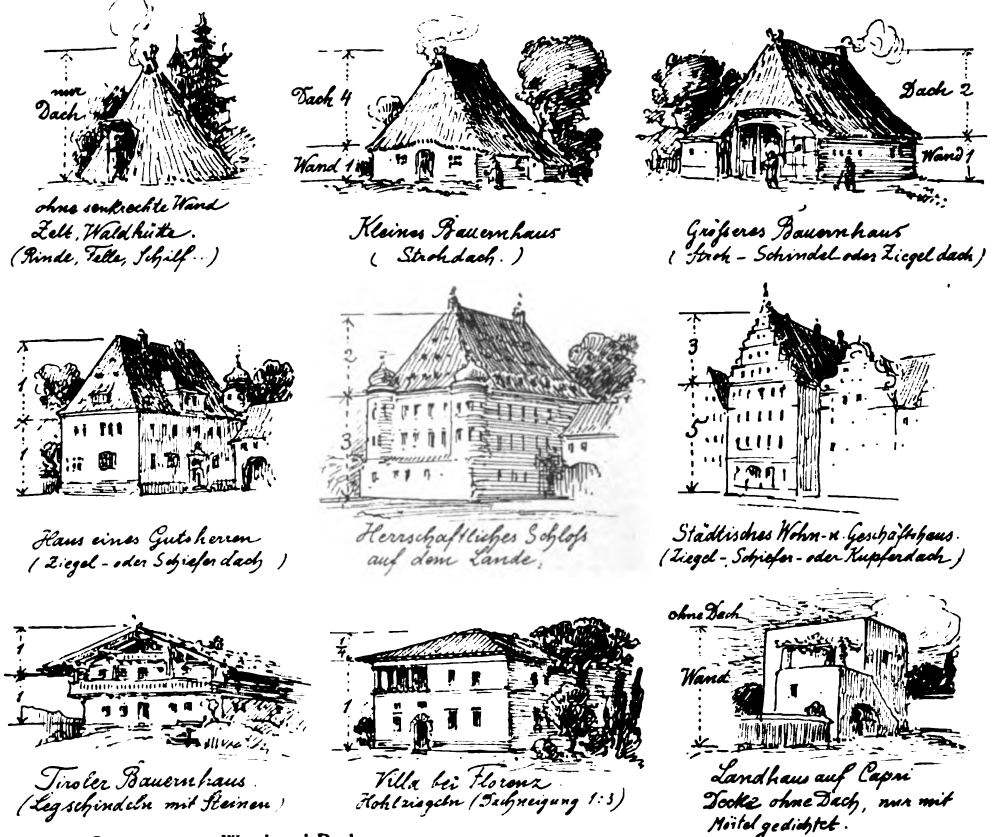 nur
Dach
Dach 4
Wand 1
Dach 2
Wand 1
ohne senkrechte Wand
Zelt, Waldhütte.
(Rinde, Felle, Schilf..)
Kleines Bauernhaus
( Strohdach. )
Größeres Bauernhaus
( Stroh - Schindel oder Ziegeldach)
1
1
2
3
3
5
Haus eines Gutsherren
( Ziegel - oder Schieferdach )
Herrschaftliches Schloß
auf dem Lande.
Städtisches Wohn- u. Geschäftshaus.
(Ziegel-, Schiefer- oder Kupferdach)
1
1
1/4
1
ohne Dach
Wand
Tiroler Bauernhaus.
(Legschindeln mit Steinen)
Villa bei Florenz.
Hohlziegeln (Dachneigung 1:3)
Landhaus auf Capri
Decke ohne Dach, nur mit
Mörtel gedichtet.